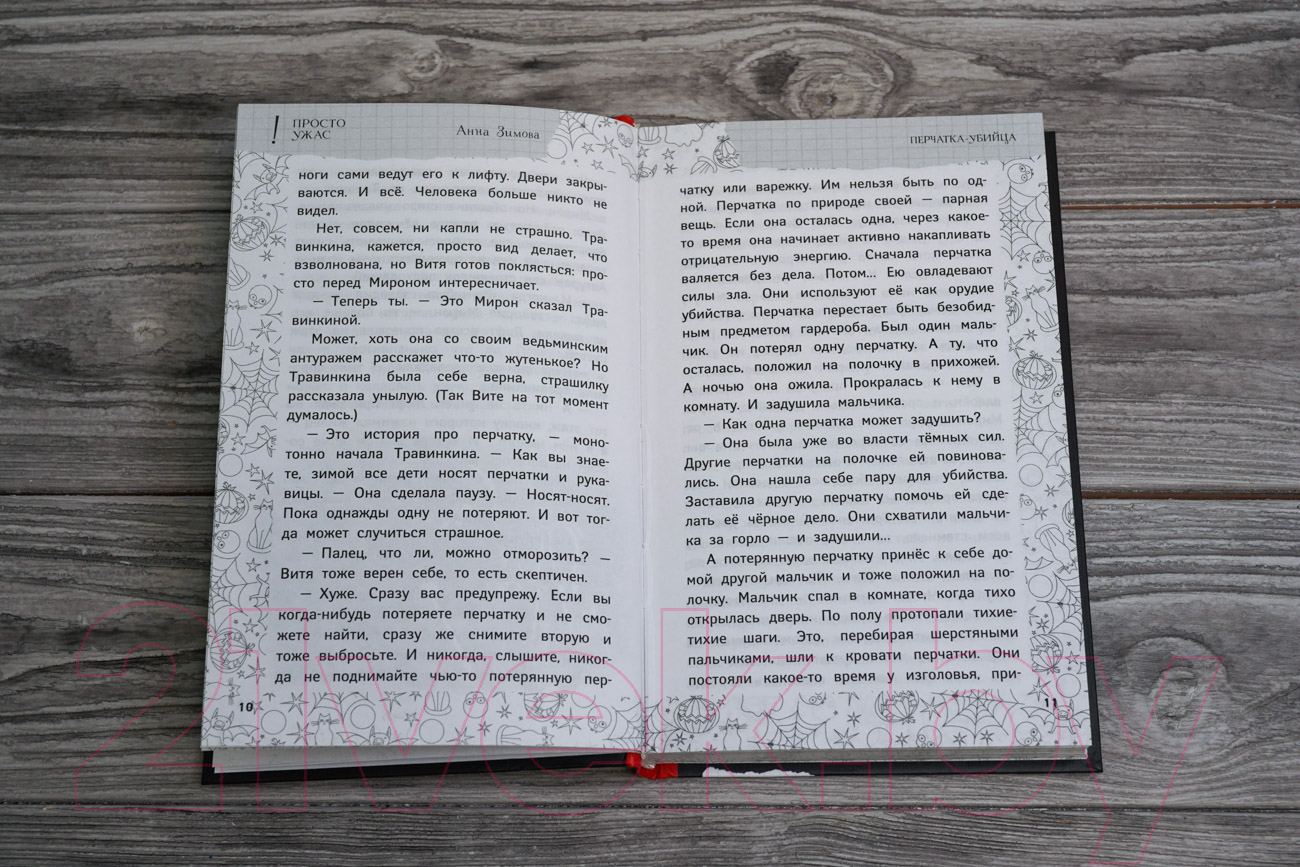 ! ПРОСТО
УЖАС
Анна Зимова
ноги сами ведут его к лифту. Двери закры-
ваются. И всё. Человека больше никто не
видел.
Нет, совсем, ни капли не страшно. Тра-
винкина, кажется, просто вид делает, что
взволнована, но Витя готов поклясться: про-
сто перед Мироном интересничает.
— Теперь ты. — Это Мирон сказал Тра-
винкиной.
Может, хоть она со своим ведьминским
антуражем расскажет что-то жутенькое? Но
Травинкина была себе верна, страшилку
рассказала унылую. (Так Вите на тот момент
думалось.)
— Это история про перчатку, — моно-
тонно начала Травинкина. — Как вы знае-
те, зимой все дети носят перчатки и рука-
вицы. — Она сделала паузу. — Носят-носят.
Пока однажды одну не потеряют. И вот тог-
да может случиться страшное.
— Палец, что ли, можно отморозить? —
Витя тоже верен себе, то есть скептичен.
— Хуже. Сразу вас предупрежу. Если вы
когда-нибудь потеряете перчатку и не смо-
жете найти, сразу же снимите вторую и
тоже выбросьте. И никогда, слышите, никог-
да не поднимайте чью-то потерянную пер-
10
ПЕРЧАТКА-УБИЙЦА
чатку или варежку. Им нельзя быть по од-
ной. Перчатка по природе своей — парная
вещь. Если она осталась одна, через какое-
то время она начинает активно накапливать
отрицательную энергию. Сначала перчатка
валяется без дела. Потом... Ею овладевают
силы зла. Они используют её как орудие
убийства. Перчатка перестает быть безобид-
ным предметом гардероба. Был один маль-
чик. Он потерял одну перчатку. А ту, что
осталась, положил на полочку в прихожей.
А ночью она ожила. Прокралась к нему в
комнату. И задушила мальчика.
— Как одна перчатка может задушить?
— Она была уже во власти тёмных сил.
Другие перчатки на полочке ей повинова-
лись. Она нашла себе пару для убийства.
Заставила другую перчатку помочь ей сде-
лать её чёрное дело. Они схватили мальчи-
ка за горло — и задушили...
А потерянную перчатку принёс к себе до-
мой другой мальчик и тоже положил на по-
лочку. Мальчик спал в комнате, когда тихо
открылась дверь. По полу протопали тихие-
тихие шаги. Это, перебирая шерстяными
пальчиками, шли к кровати перчатки. Они
постояли какое-то время у изголовья, при-
11
21vek.by